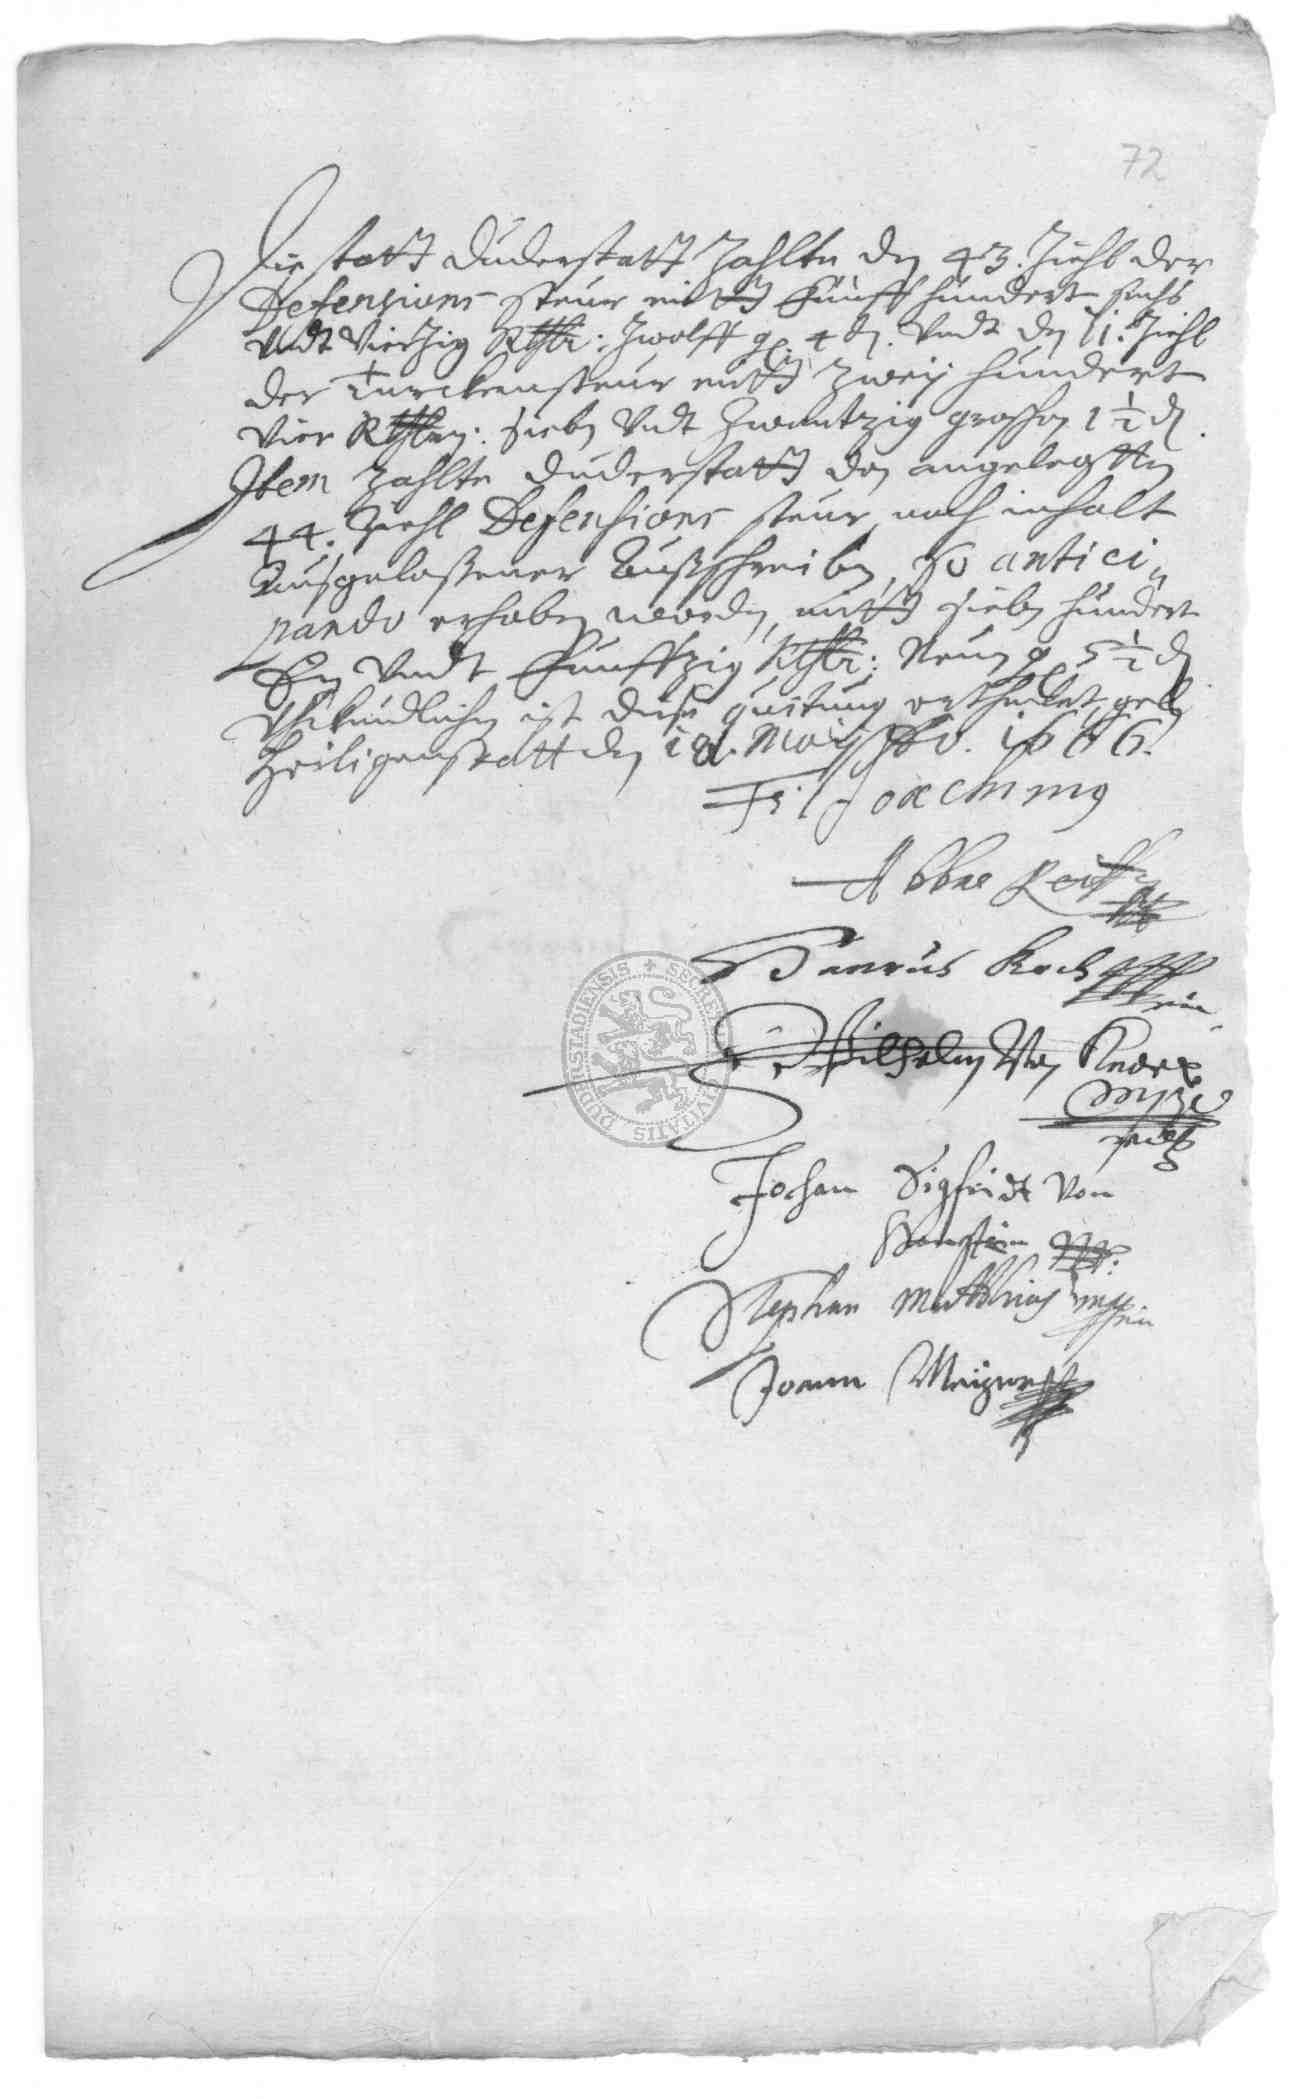 72
Die statt Duderstatt zahlte den 43. Ziehl der
Defensions steur mitt Funff hundert sechs
undt Vierzig Rthlr: Zwolff g. 4 d. Undt den 11. Ziehl
der Turckensteur mitt zweij hundert
Vier Rthlern: sieben Undt Zwantzig groschen 1 1/2 d.
Item zahlte Duderstatt den angelegtten
44. Ziehl Defensions steur, nach inhalt
Ausgelaßener Außschreiben, so antici-
pando erhoben worden, mitt sieben hundert
Ein Undt Funffzig Rthlr: Neun g. 5 1/2 d
Uhrkundlichen ist diese quitung ertheilet, geben
Heiligenstatt den Maij Ao. 1606.
Joachimus
Abbas
Koch
Wilhelm Von
Johan Sigfridt Von
Hanstein
Stephan Matthias
Joann
DUDERSTADIENSIS + SECRETUM CIVITATIS